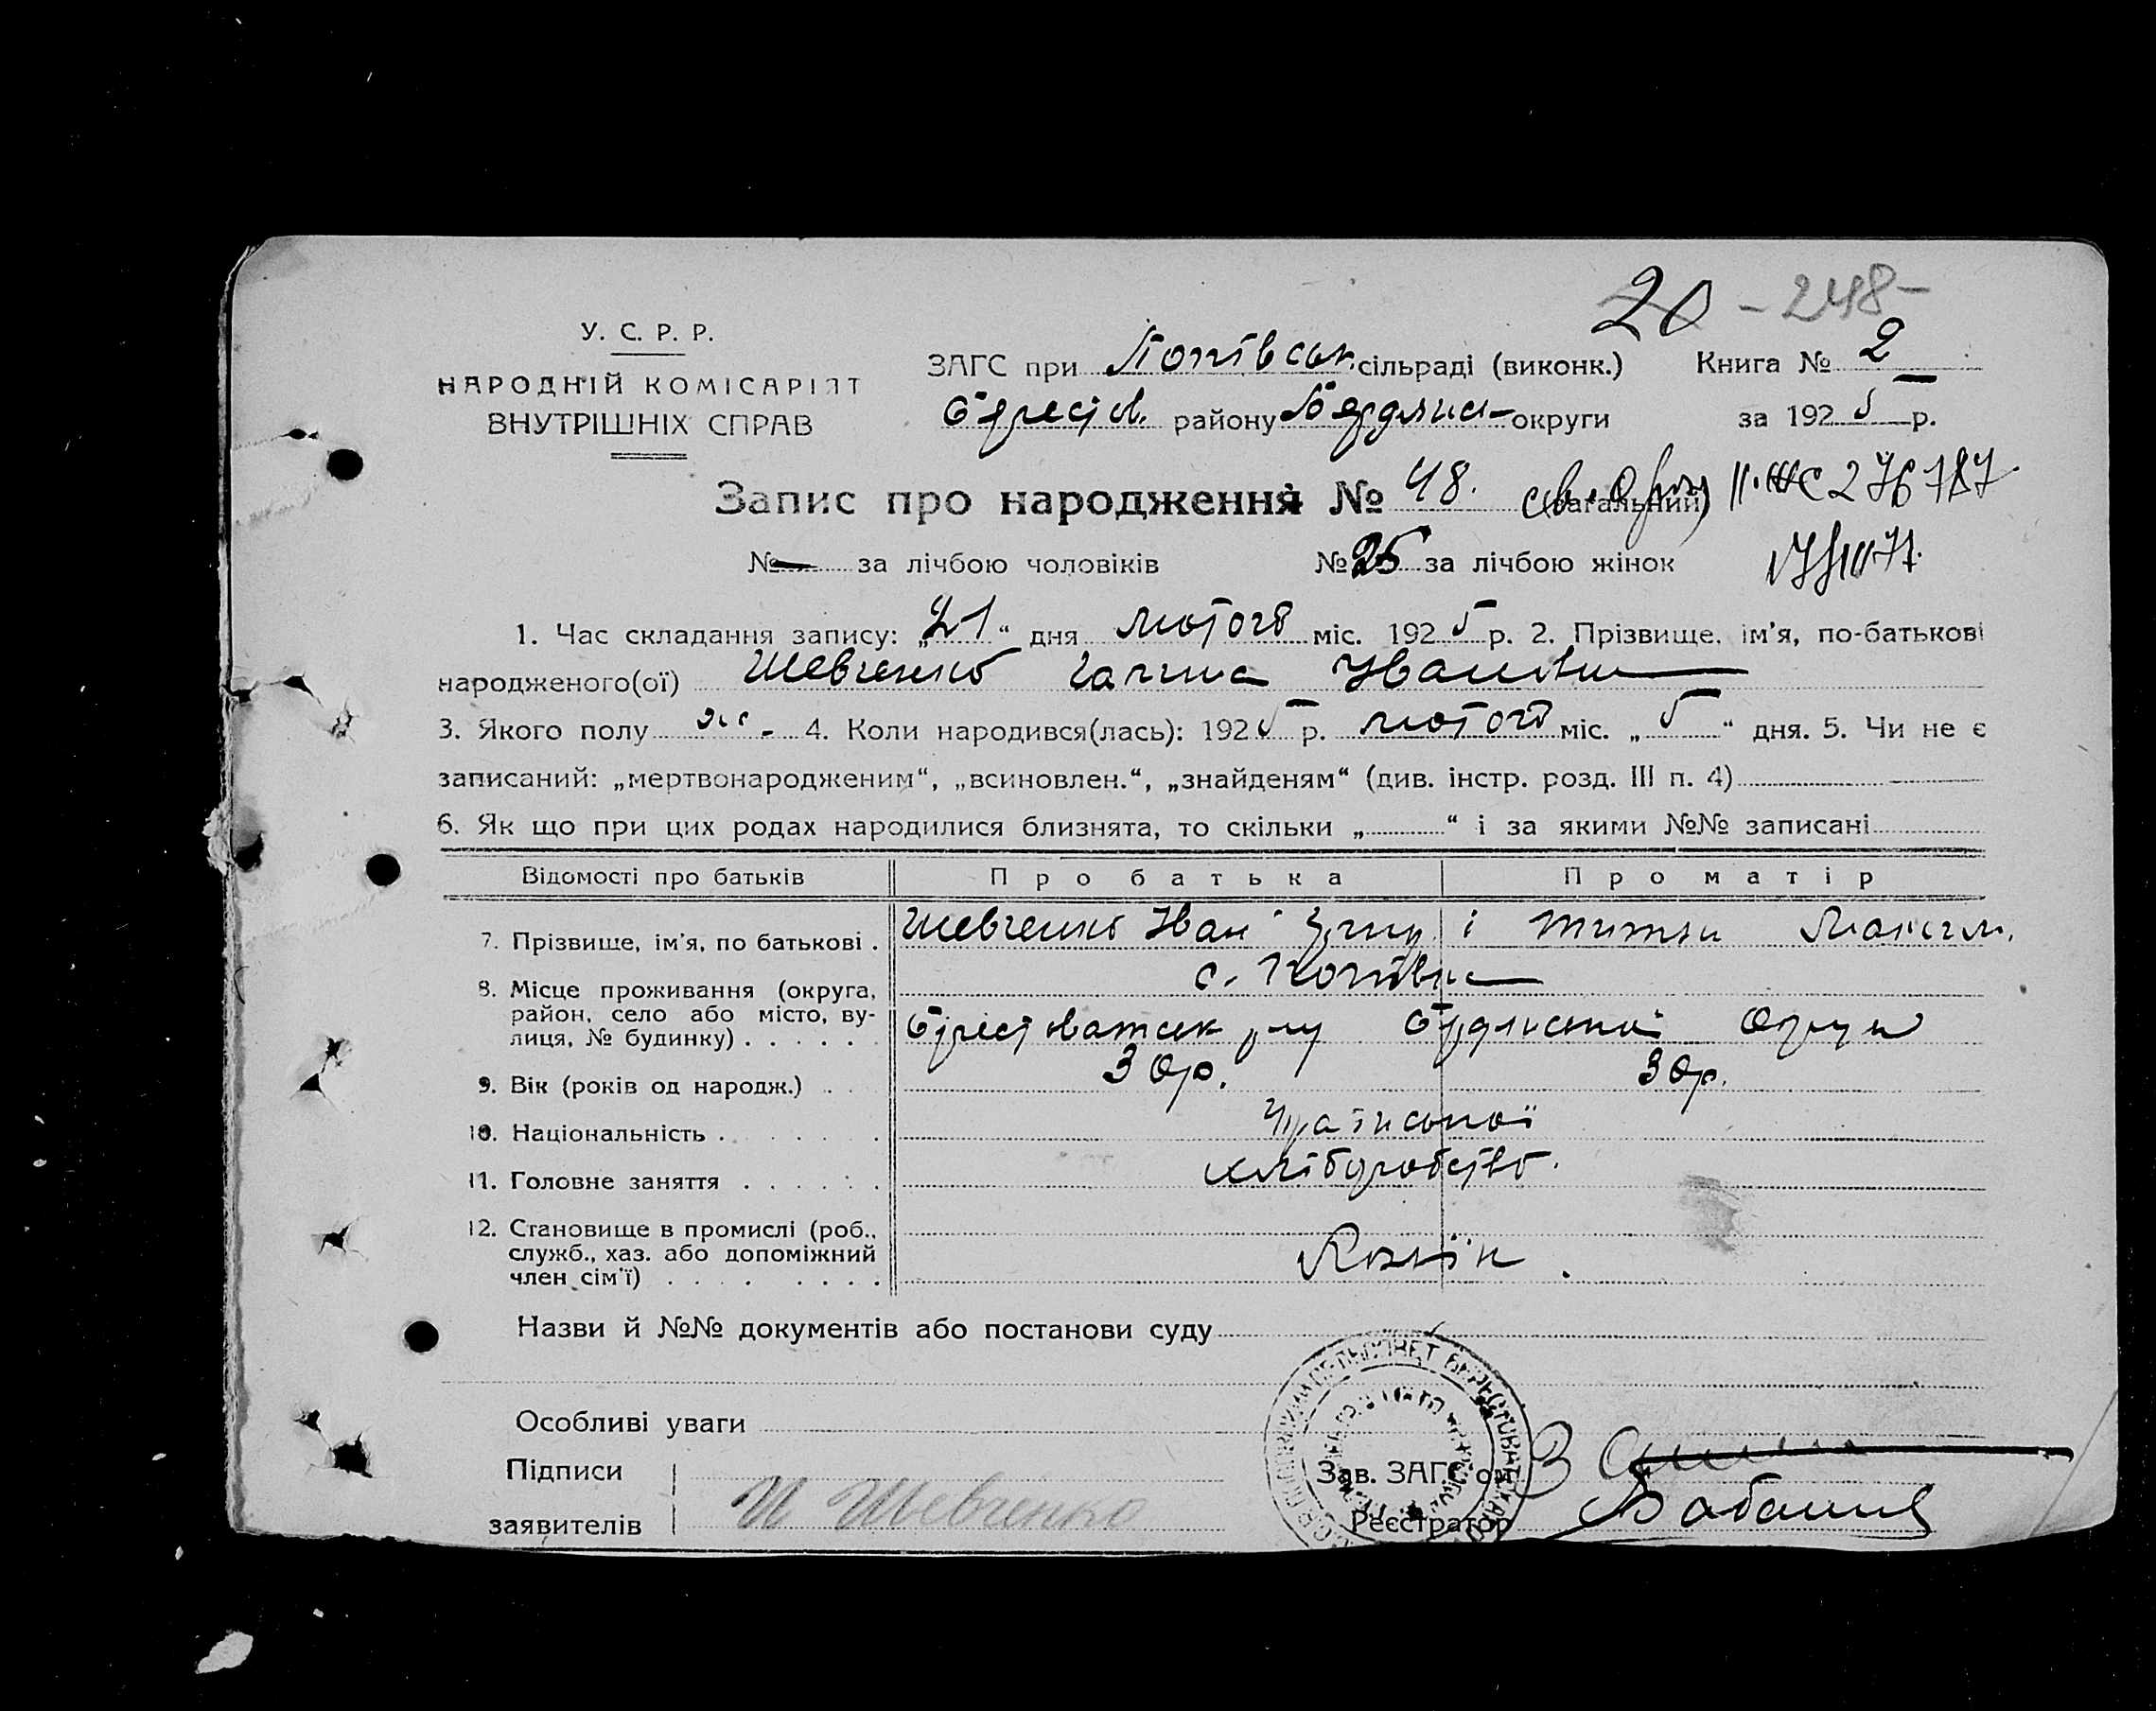 20 - 248 -
У. С. Р. Р.
НАРОДНІЙ КОМІСАРІЯТ
ВНУТРІШНІХ СПРАВ
ЗАГС при Попівськ. сільраді (виконк.) Книга № 2
району Бердянськ округи за 1925 р.
Запис про народження № 48. (загальний) II-ЖС 276787
№ — за лічбою чоловіків № 25 за лічбою жінок
1. Час складання запису: „21“ дня лютого міс. 1925 р. 2. Прізвище, ім'я, по-батькові
народженого(ої) Шевченко Галина Іванівна
3. Якого полу ж. 4. Коли народився(лась): 1925 р. лютого міс. „5“ дня. 5. Чи не є
записаний: „мертвонародженим“, „всиновлен.“, „знайденям“ (див. інстр. розд. III п. 4)
6. Як що при цих родах народилися близнята, то скільки „ “ і за якими №№ записані
Відомості про батьків Про батька Про матір
7. Прізвище, ім'я, по батькові . Шевченко Іван і Максим.
8. Місце проживання (округа, район, село або місто, вулиця, № будинку) . . . . . . с. Попівка
Округи
9. Вік (років од народж.) . . 30р. 30р.
10. Національність . . . . . . . Української
11. Головне заняття . . . . . . хліборобство.
12. Становище в промислі (роб., служб., хаз. або допоміжний член сім'ї) . . . . . . . .
Назви й №№ документів або постанови суду
Особливі уваги
Підписи
заявителів И Шевченко
Зав. ЗАГС'ом
Реєстратор